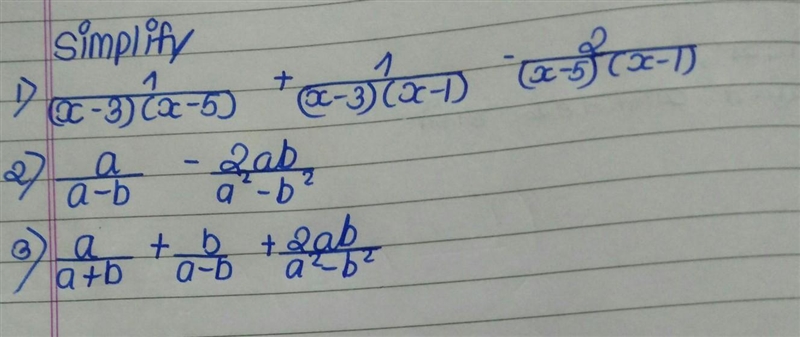 Simplify
1) 1/((x-3)(x-5)) + 1/((x-3)(x-1)) - 2/((x-5)(x-1))
2) a/(a-b) - 2ab/(a²-b²)
3) a/(a+b) + b/(a-b) + 2ab/(a²-b²)